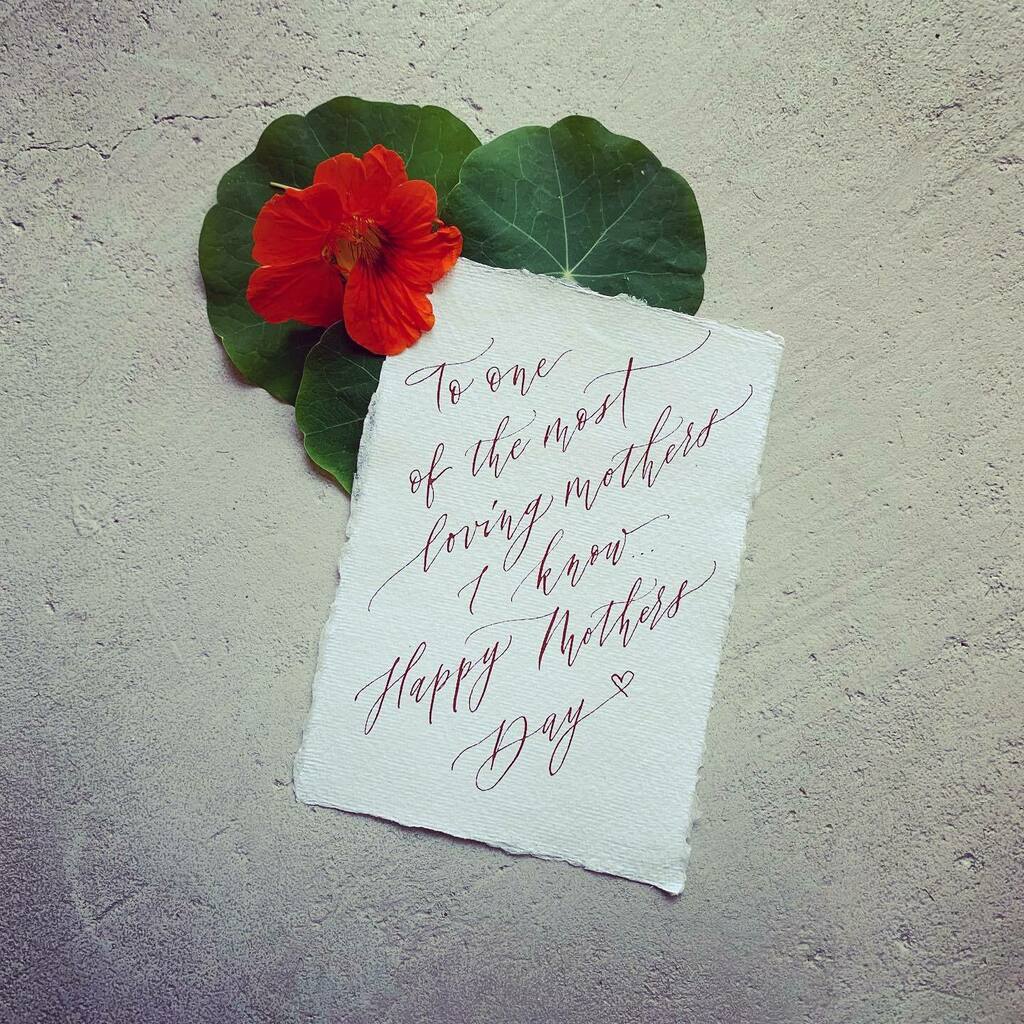 To one
of the most
loving mothers
I know...
Happy Mothers
Day